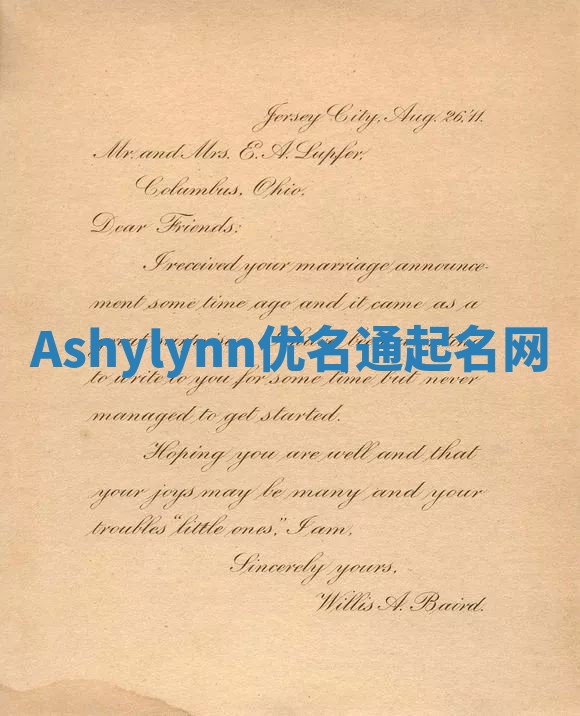 Jersey City, Aug. 26,'11.
Mr. and Mrs. E. A. Lupfer,
Columbus, Ohio.
Dear Friends:
I received your marriage announce-
ment some time ago and it came as a
Ashylynn优名通起名网
to write to you for some time but never
managed to get started.
Hoping you are well and that
your joys may be many and your
troubles "little ones," I am,
Sincerely yours,
Willis A. Baird.